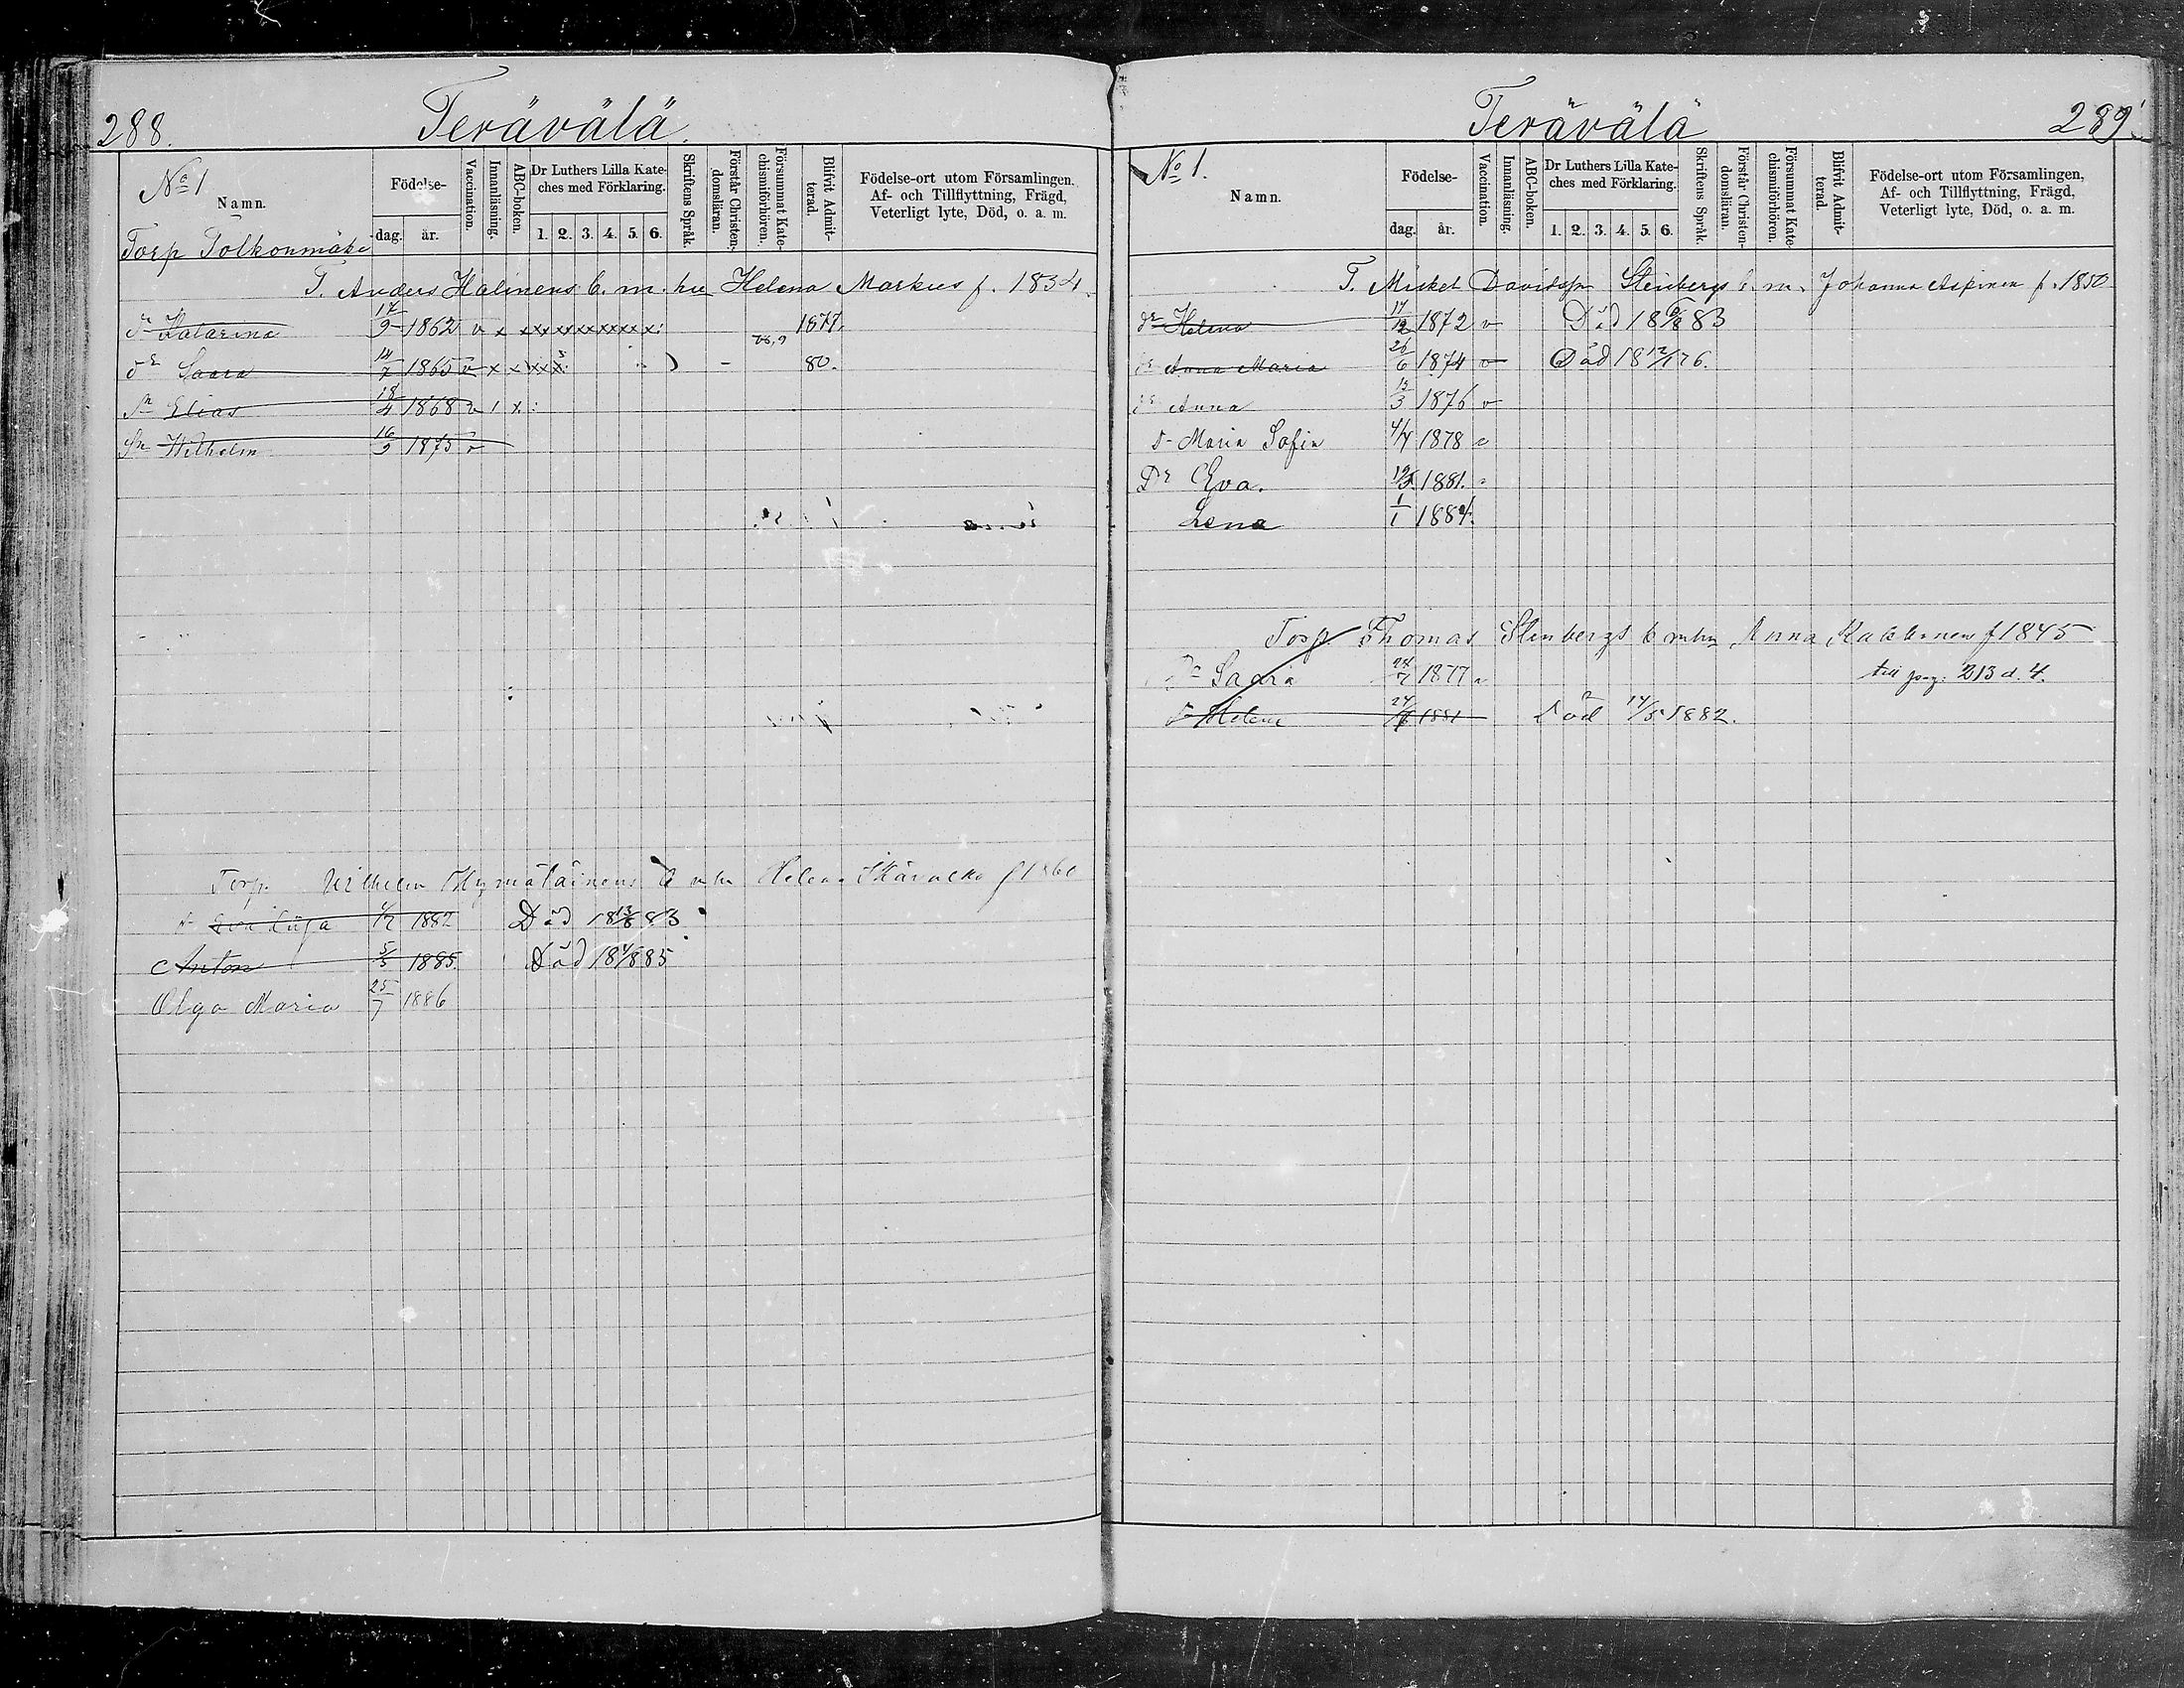 288.
Terävälä.
No 1
Namn.
Födelse-
dag.
år.
Vaccination.
Innanläsning.
ABC-boken.
Dr Luthers Lilla Kate-
ches med Förklaring.
1. 2. 3. 4. 5. 6.
Skriftens Språk.
Förstår Christen-
domsläran.
Försummat Kate-
chismiförhören.
Blifvit Admit-
terad.
Födelse-ort utom Församlingen,
Af- och Tillflyttning, Frägd,
Veterligt lyte, Död, o. a. m.
Torp Polkonmäki
T. Anders Halinens b. m. hu Helena Markus f. 1834.
dr Katarina 17/9 1862 v x x xxxxxxxxx: 1877.
dr Saara 14/7 1865 v x x xxx: - 80.
sn Elias 18/4 1868 v 1 x :
sn Wilhelm 16/9 1875 v
Torp. Wilhelm b m hu Helena f 1860
d 1882 Död 18 13/8 83
Anton 5/5 1885. Död 18 85
Olga Maria 25/7 1886
289.
Terävälä
No 1.
Namn.
Födelse-
dag.
år.
Vaccination.
Innanläsning.
ABC-boken.
Dr Luthers Lilla Kate-
ches med Förklaring.
1. 2. 3. 4. 5. 6.
Skriftens Språk.
Förstår Christen-
domsläran.
Försummat Kate-
chismiförhören.
Blifvit Admit-
terad.
Födelse-ort utom Församlingen,
Af- och Tillflyttning, Frägd,
Veterligt lyte, Död, o. a. m.
T. Mickel Davidsson Stenbergs b. m. Johanna Aspinen f. 1850
dr Helena 17/12 1872 v Död 18 6/8 83
dr Anna Maria 26/6 1874 v Död 18 12/1 76.
dr Anna 13/3 1876 v
d Maria Sofia 4/4 1878 v
Dr Eva. 1881.
Lena 1/1 1884.
Torp. Thomas Stenbergs b m hu Anna f 1845
Dr Saara 24/7 1877 v till pag: 213 d. 4.
dr Helena 1881 Död 14/5 1882.